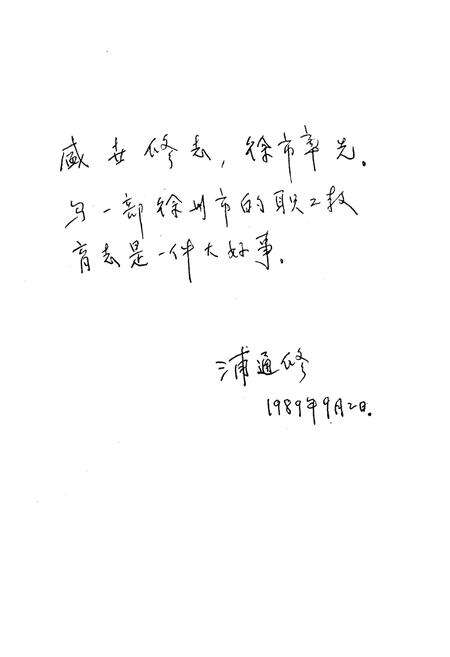 盛世修志，徐市率先。
写一部徐州市的职工教
育志是一件大好事。
浦通修
1989年9月2日.